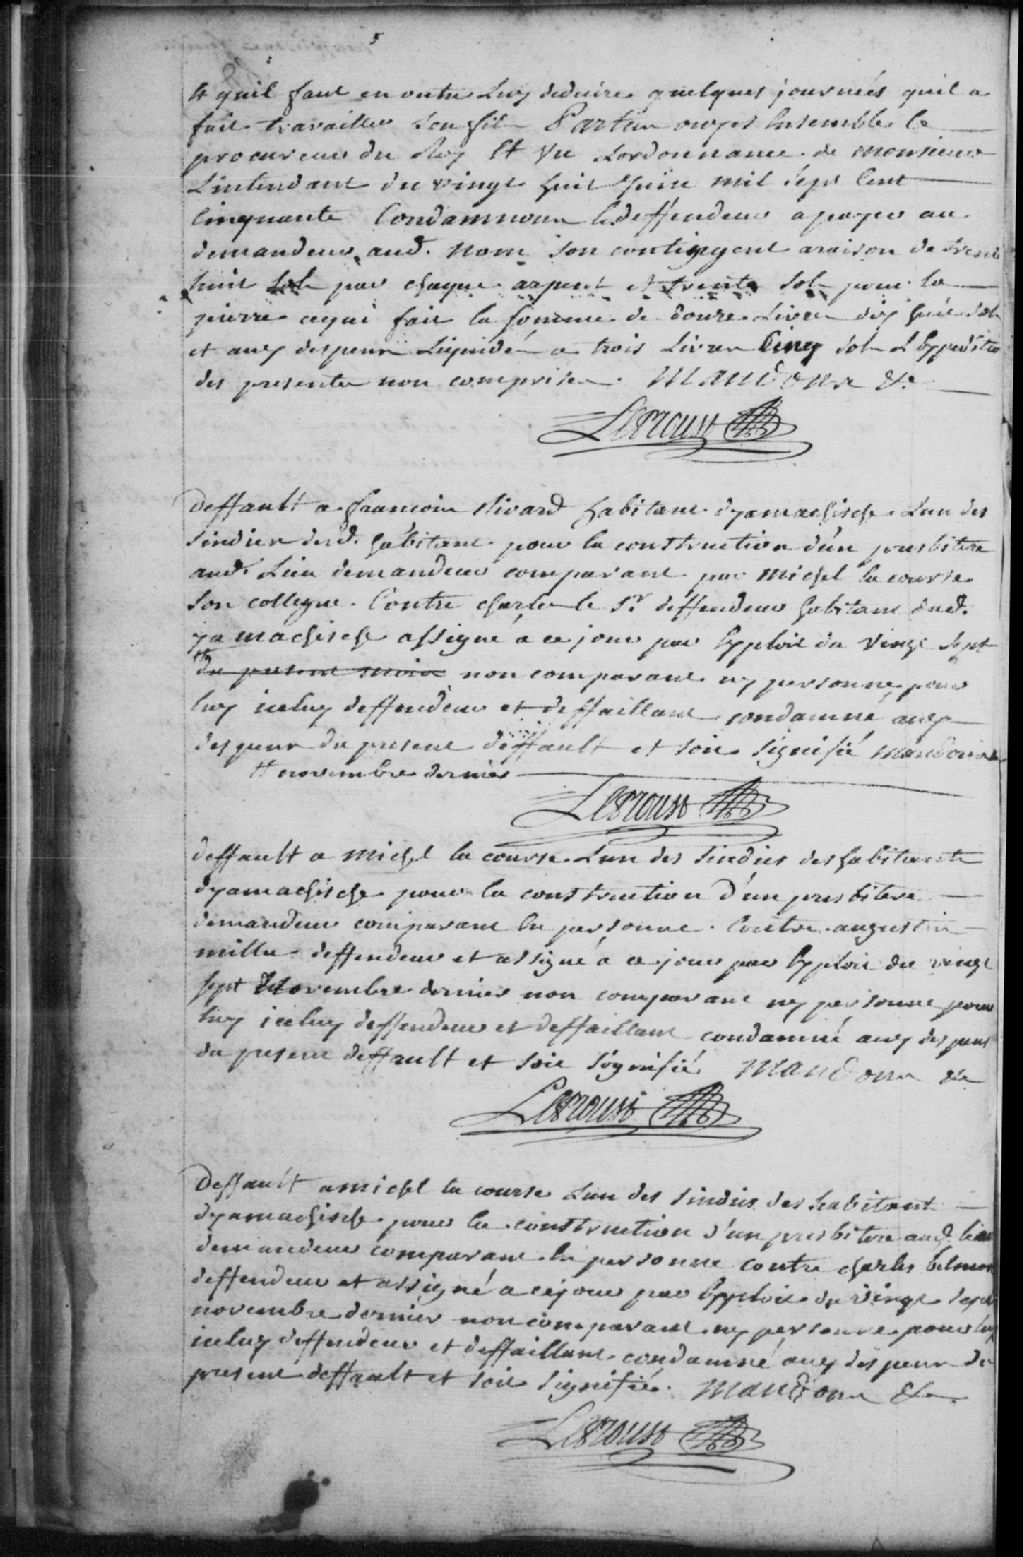 5
et quil faut en outre luy deduire quelques journées quil a
fait travailler son fils Parties ouyes Ensemble le
procureur du Roy Et vu Lordonnance de monsieur
Lintendant du vingt huit Juin mil sept Cent
Cinquante Condamnons le deffendeur a payer au
demandeur aud. nom son contingent araison de trente
huit sols par chaque arpent et trente sols pour la
pierre cequi fait la somme de douze Livres dix huit sols
et aux despens Liquidés a trois Livres Cinq sols L'Expedition
des presentes non comprises. Mandons &c
Leproust
Deffault a francois Rivard habitant dyamachiche Lun des
sindics desd. habitans pour la construction d'un presbitere
aud. Lieu demandeur comparant par michel la course
son collegue. Contre charles le Sr. deffendeur habitant dud.
yamachiche assigné a ce jour par Exploit du vingt sept
du present mois non comparant ny personne pour
luy iceluy deffendeur et deffaillant condamné aux
despens du present deffault et soit signifié mandons
novembre dernier
Leproust
deffault a michel la course Lun des sindics des habitants
dyamachiche pour la construction d'un presbitere
demandeur comparant En personne. Contre augustin
millet deffendeur et assigné a ce jour par Exploit du vingt
sept Novembre dernier non comparant ny personne pour
luy iceluy deffendeur et deffaillant condamné aux despens
du present deffault et soit signifié Mandons &c
Leproust
Deffault a michel la course Lun des sindics des habitant
dyamachiche pour la construction d'un presbitere aud. lieu
demandeur comparant En personne contre charles
deffendeur et assigné a cejour par Exploit du vingt sept
novembre dernier non comparant ny personne pour luy
iceluy deffendeur et deffaillant condamné aux despens du
present deffault et soit signifié. Mandons &c.
Leproust